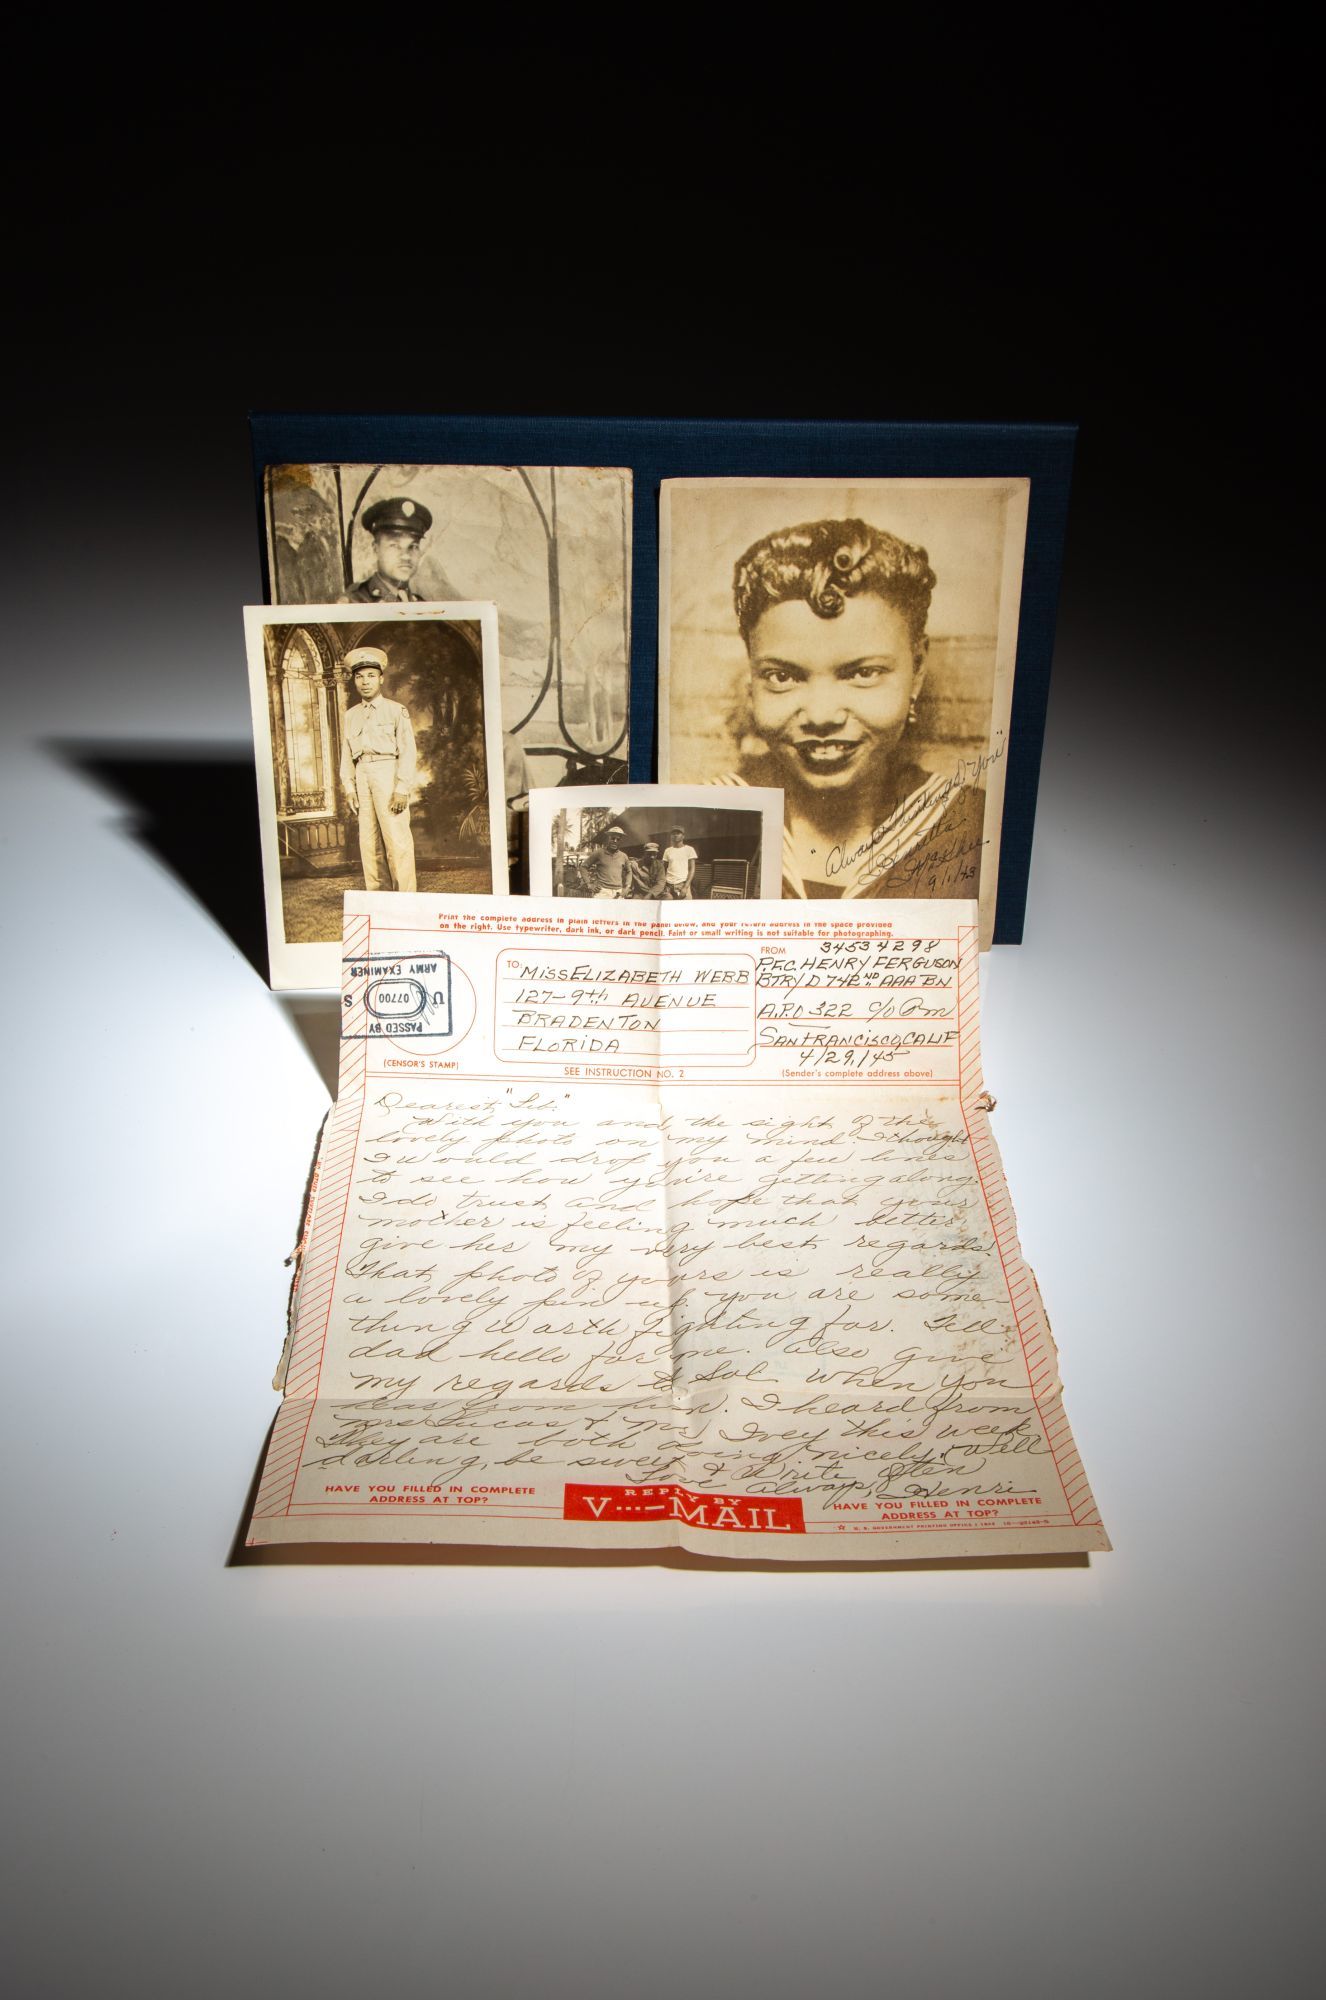 "Always Thinking of You"
9/1/43
Print the complete address in plain letters in the panel below, and your return address in the space provided
on the right. Use typewriter, dark ink, or dark pencil. Faint or small writing is not suitable for photographing.
PASSED BY
U S
07700
ARMY EXAMINER
(CENSOR'S STAMP)
TO:
MISS ELIZABETH WEBB
127-9th AVENUE
BRADENTON
FLORIDA
SEE INSTRUCTION NO. 2
FROM
34534298
P.F.C. HENRY FERGUSON
BTRY D 742ND AAA BN
A.P.O 322 C/O P.M
SAN FRANCISCO, CALIF
4/29/45
(Sender's complete address above)
Dearest "Lib."
With you and the sight of the
lovely photo on my mind. I thought
I would drop you a few lines
to see how you're getting along.
I do trust and hope that your
mother is feeling much better
give her my very best regards.
That photo of yours is really
a lovely pin-up. you are some-
thing worth fighting for. Tell
dad hello for me. Also give
my regards to Sol when you
hear from him. I heard from
Mrs Lucas & Mr Ivey this week
They are both doing nicely. Well
darling, be sweet & Write Often
Love Always, Henri
HAVE YOU FILLED IN COMPLETE
ADDRESS AT TOP?
REPLY BY
V···—MAIL
HAVE YOU FILLED IN COMPLETE
ADDRESS AT TOP?
☆ U. S. GOVERNMENT PRINTING OFFICE